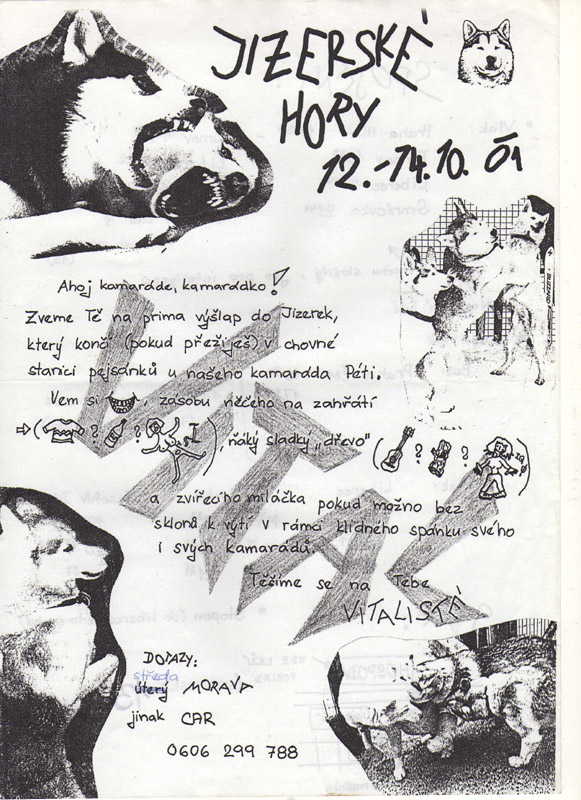 JIZERSKÉ
HORY
12.-14.10. 01
Ahoj kamaráde, kamarádko!
Zveme Tě na prima výšlap do Jizerek,
který končí (pokud přežiješ) v chovné
stanici pejsánků u našeho kamaráda Péti.
Vem si , zásobu něčeho na zahřátí
( ? ? ), ňáký sladký „dřevo" ( ? ? )
a zvířecího miláčka pokud možno bez
sklonů k vytí v rámci klidného spánku svého
i svých kamarádů.
Těšíme se na Tebe
VITALISTÉ
VITAL
DOTAZY:
středa
úterý MORAVA
jinak CAR
0606 299 788